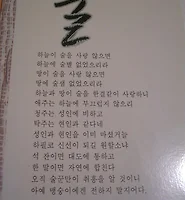 술
하늘이 술을 사랑 않으면
하늘에 술별 없었으리라
땅이 술을 사랑 않으면
땅에 술샘 없었으리라
하늘과 땅이 술을 한결같이 사랑하니
애주는 하늘에 부끄럽지 않으리
청주는 성인에 비하고
탁주는 현인과 같다네
성인과 현인을 이미 마셨거늘
하필코 신선이 되길 원할소냐
석 잔이면 대도에 통하고
한 말이면 자연에 합한다
오직 술꾼만이 취흥을 알 것이니
아예 맹숭이에겐 전하지 말지어다.